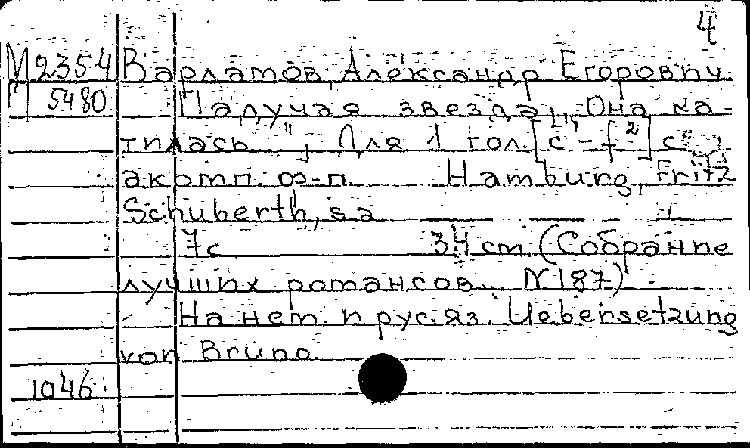 4
М 2354 Варламов, Александр Егорович.
П 5480 Падучая звезда „Она ка-
тилась", Для 1 гол. [c¹-f²] с
акомп. ф-п. Hamburg, Fritz
Schuberth, s.a.
7с 34 cm (Собрание
лучших романсов. N 187)
На нем. и рус. яз. Uebersetzung
von Bruno.
1046